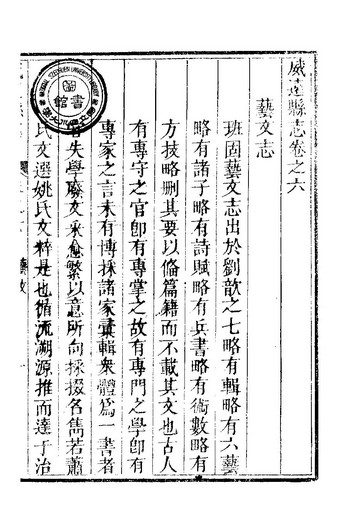 威遠縣志卷之六
藝文志
班固藝文志出於劉歆之七略有輯略有六藝
略有諸子略有詩賦略有兵書略有術數略有
方技略刪其要以備篇籍而不載其文也古人
有專守之官卽有專掌之故有專門之學卽有
專家之言未有博採諸家彙輯衆體爲一書者
失學縣文采愈繁以意所向採掇名雋若蕭
氏文選姚氏文粹是也循流溯源推而達于治
書館